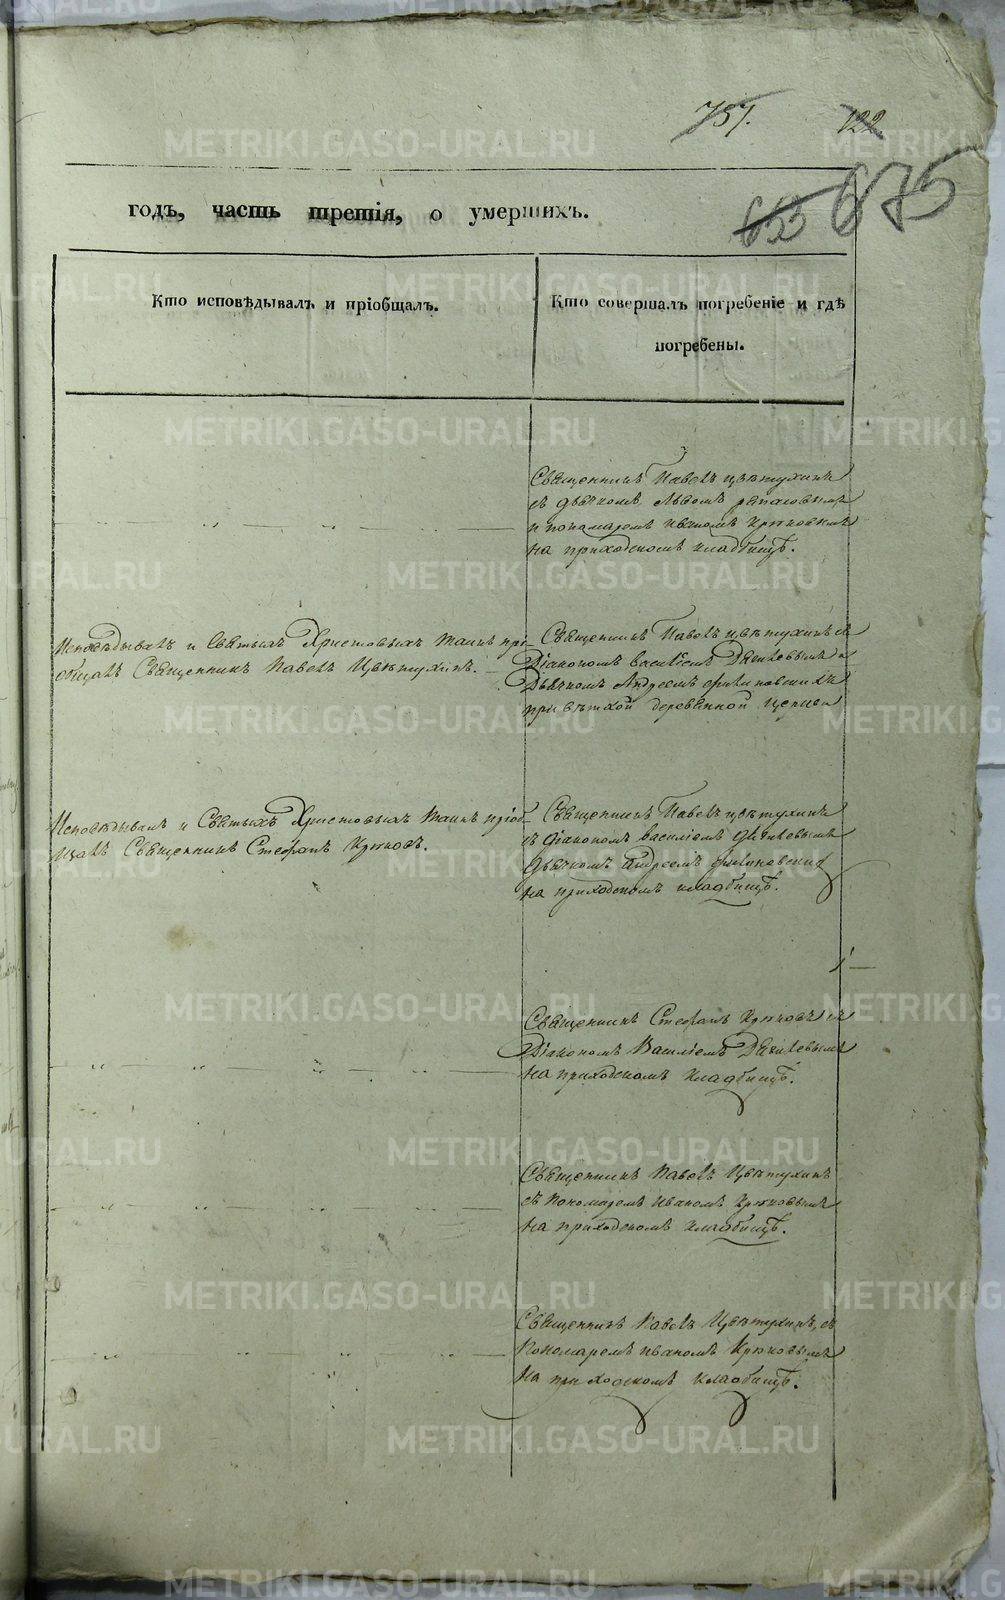 757.
122
653 675
годъ, часть третія, о умершихъ.
Кто исповѣдывалъ и пріобщалъ.
Кто совершалъ погребеніе и гдѣ
погребены.
Священникъ Павелъ Цвѣтухинъ
съ дьячкомъ Львомъ
и пономаремъ Иваномъ Крюковымъ
на приходскомъ кладбищѣ.
Исповѣдывалъ и Святыхъ Христовыхъ Таинъ прі-
общалъ Священникъ Павелъ Цвѣтухинъ.
Священникъ Павелъ Цвѣтухинъ съ
Діакономъ Василіемъ и
Дьячкомъ Андреемъ
при вѣтхой деревянной церкви
Исповѣдывалъ и Святыхъ Христовыхъ Таинъ пріоб-
щалъ Священникъ Стефанъ Крюковъ.
Священникъ Павелъ Цвѣтухинъ
съ діакономъ Василіемъ
дьячкомъ Андреемъ
на приходскомъ кладбищѣ.
1
Священникъ Стефанъ Крюковъ съ
Діакономъ Василіемъ
на приходскомъ кладбищѣ.
Священникъ Павелъ Цвѣтухинъ
съ Пономаремъ Иваномъ Крюковымъ
на приходскомъ кладбищѣ.
Священникъ Павелъ Цвѣтухинъ, съ
Пономаремъ Иваномъ Крюковымъ
на приходскомъ кладбищѣ.
METRIKI.GASO-URAL.RU